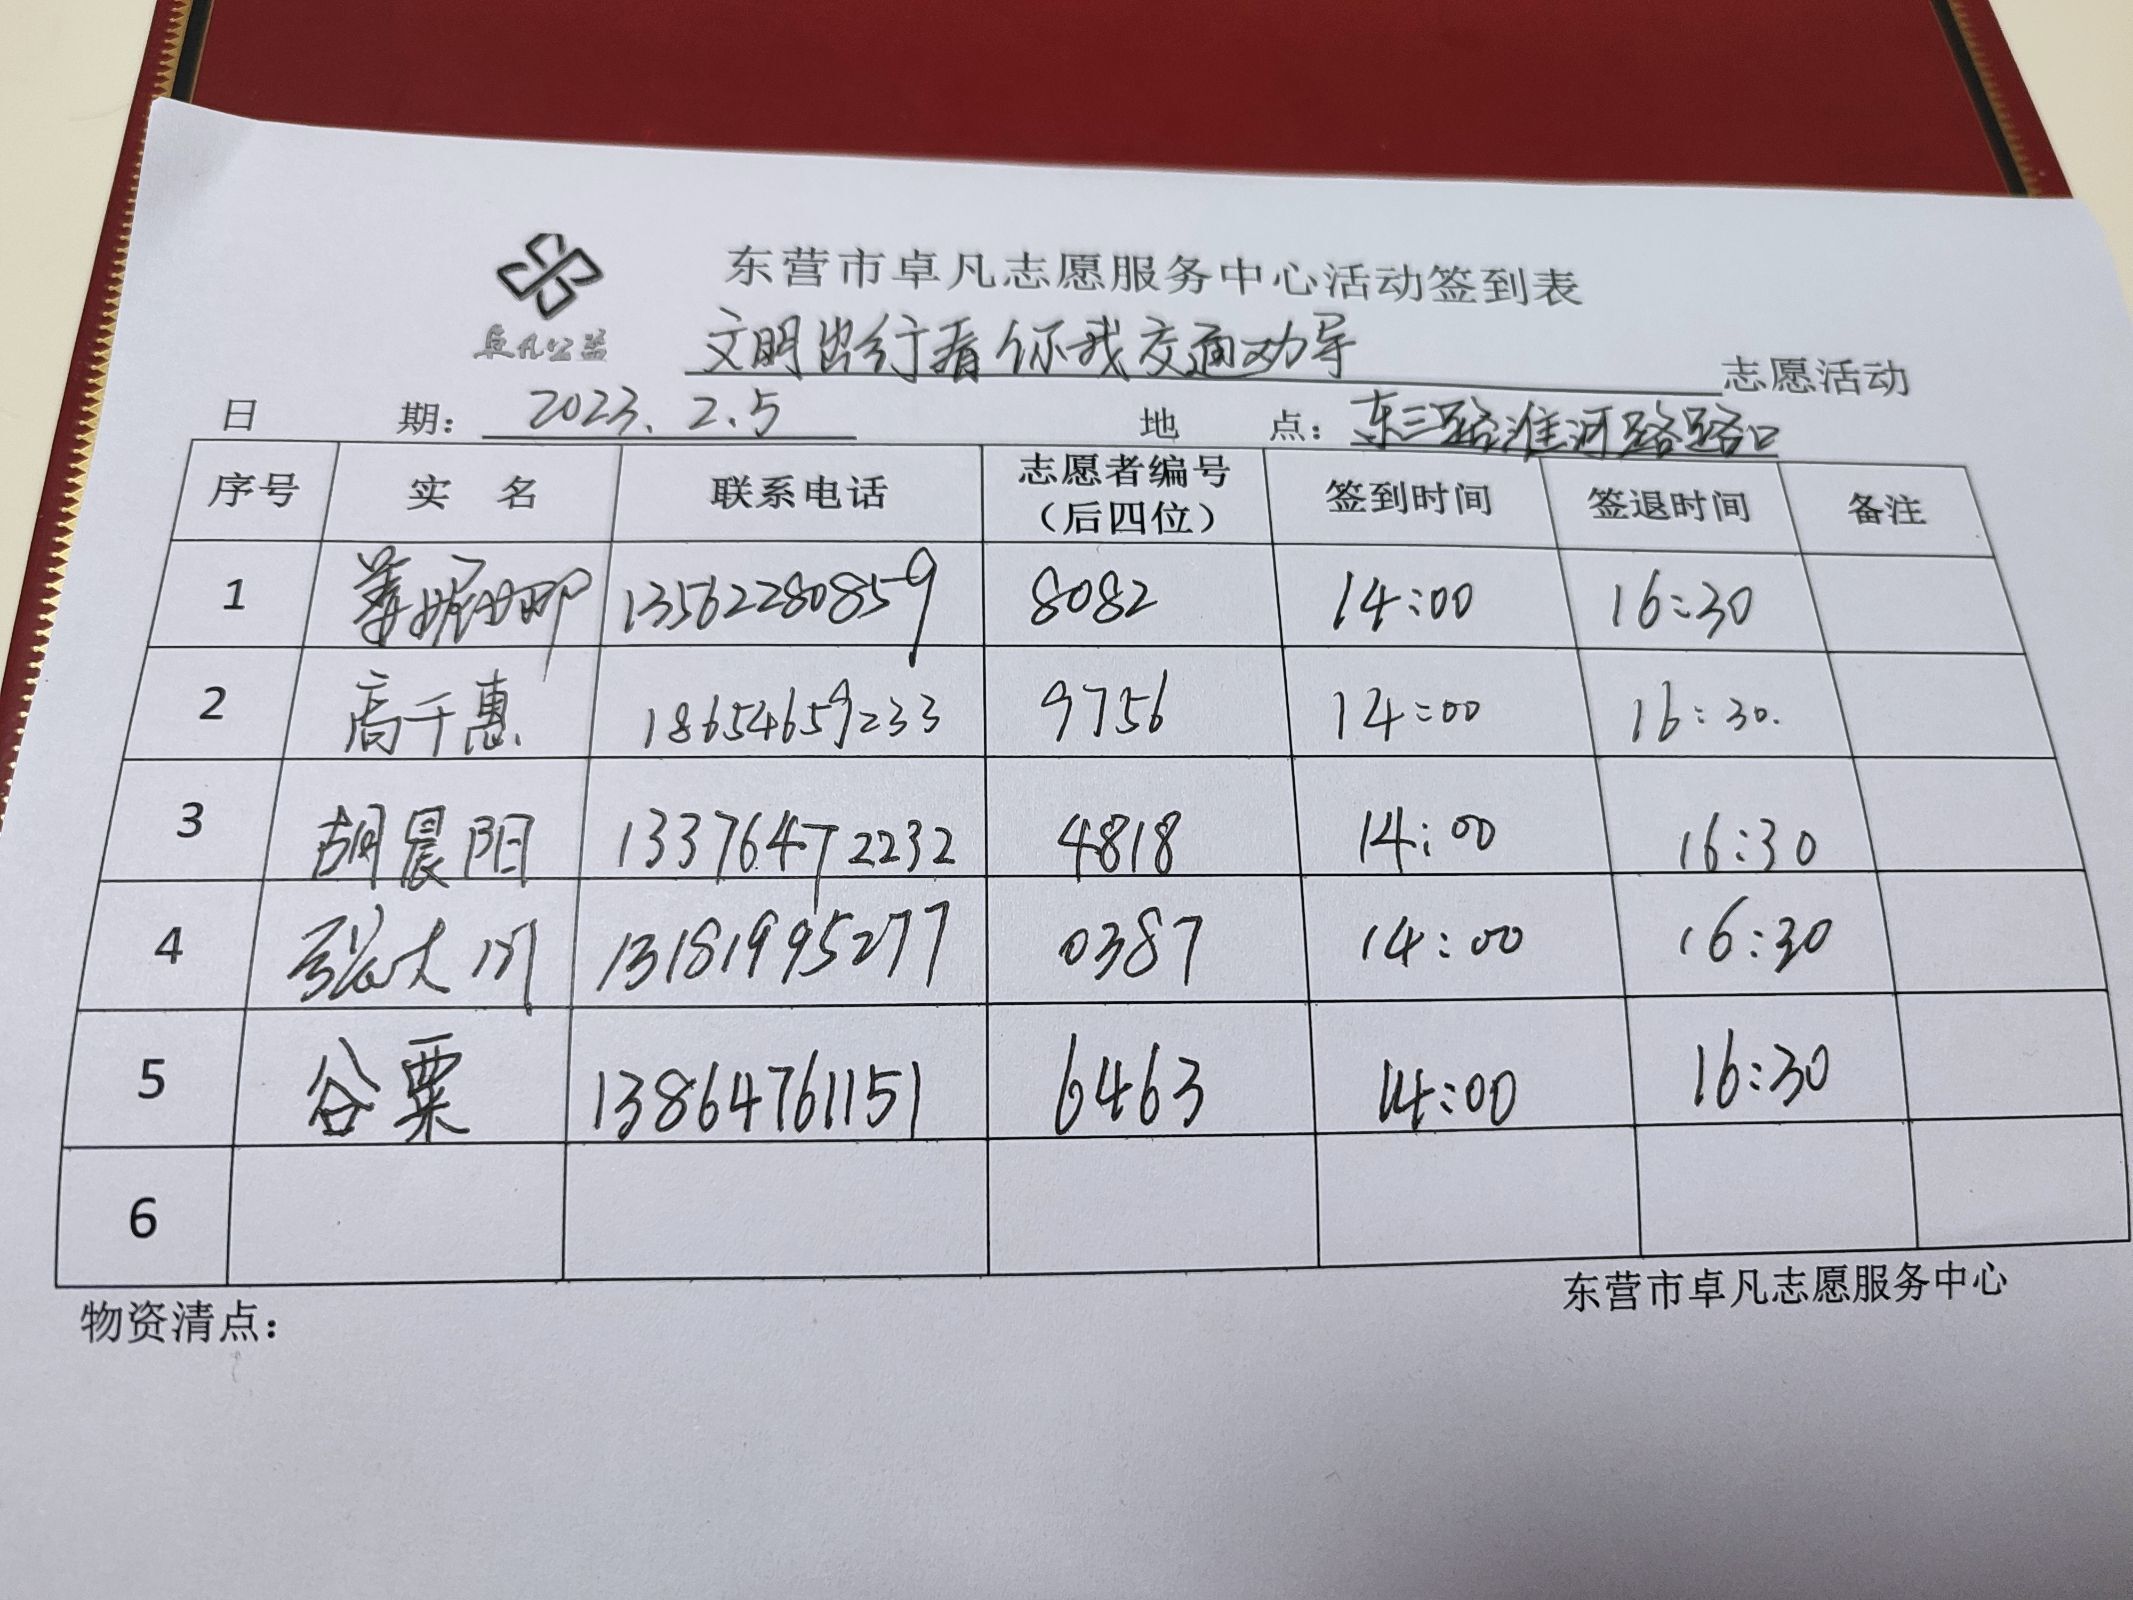 东营市卓凡志愿服务中心活动签到表
卓凡公益
文明出行看你我交通劝导 志愿活动
日 期: 2023.2.5 地 点: 东三路淮河路路口
序号 实 名 联系电话 志愿者编号（后四位） 签到时间 签退时间 备注
1 姜妮娜 13562280859 8082 14:00 16:30
2 高千惠 18654659233 9756 14:00 16:30.
3 胡晨阳 13376472232 4818 14:00 16:30
4 张大川 13181995277 0387 14:00 16:30
5 谷粟 13864761151 6463 14:00 16:30
6
东营市卓凡志愿服务中心
物资清点: